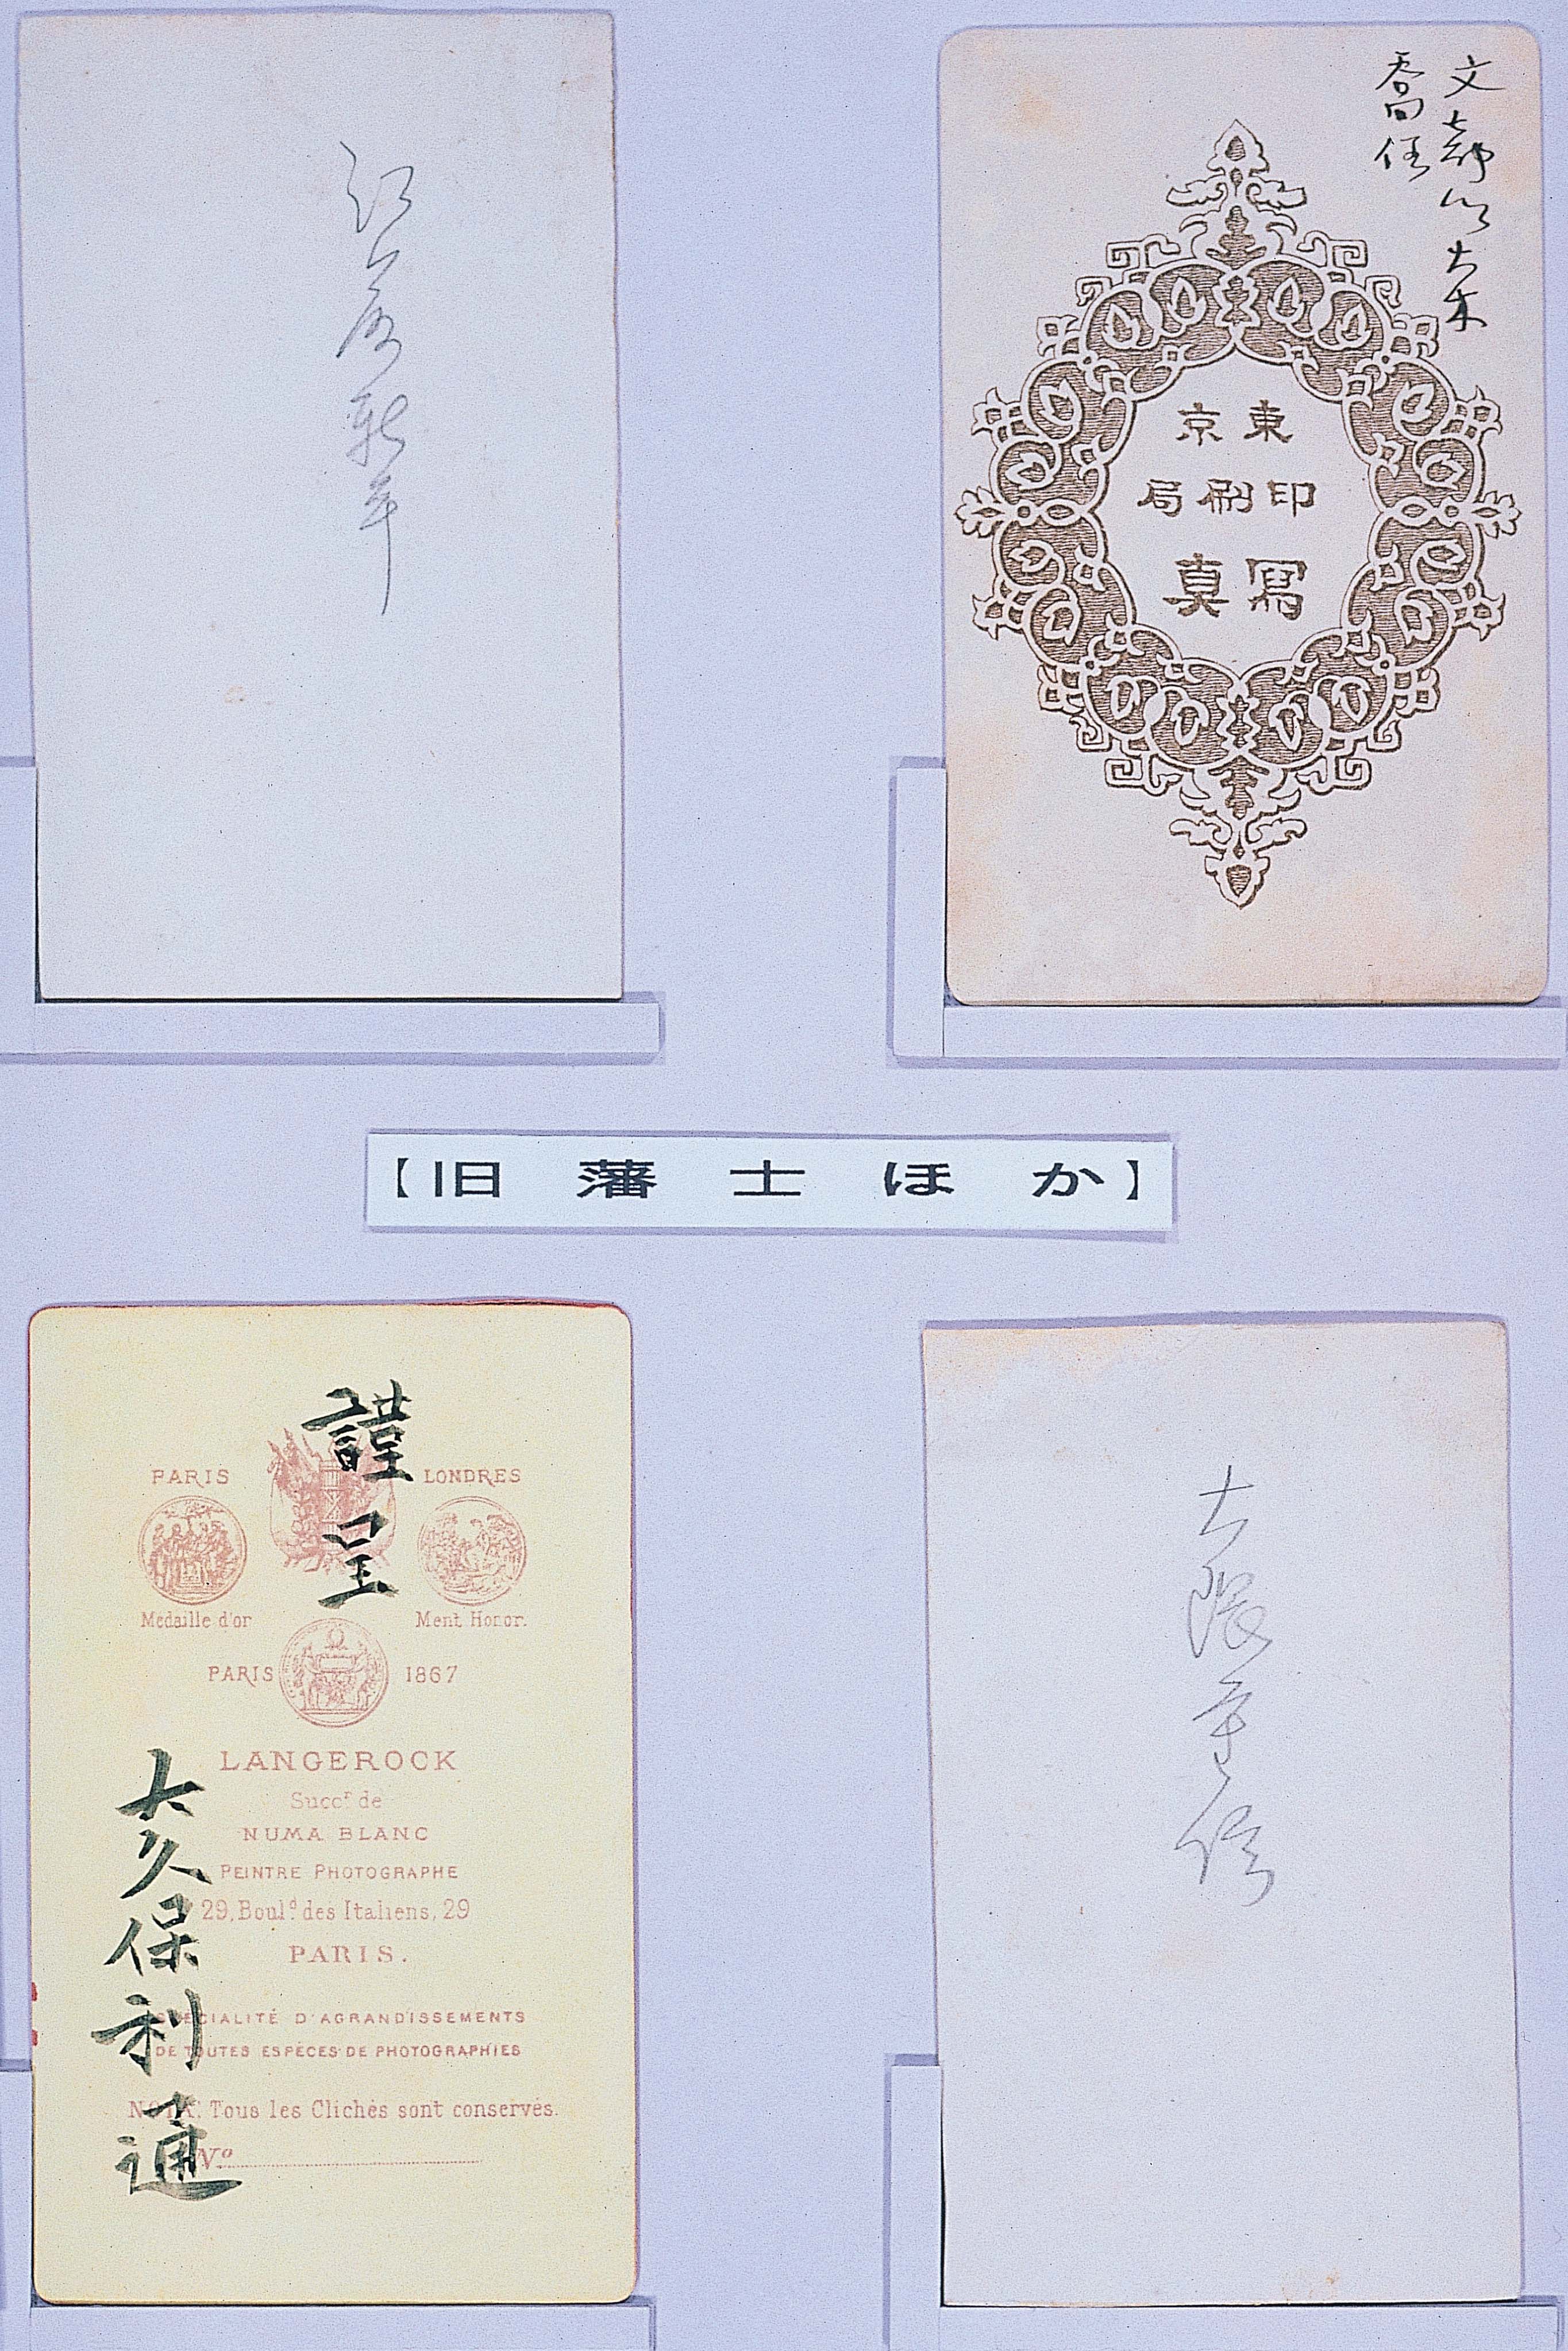 江藤新平
文部卿大木
喬任
東京
印刷局
寫真
【旧藩士ほか】
謹呈
PARIS
LONDRES
Medaille d'or
Ment Honor.
PARIS 1867
LANGEROCK
Succr de
NUMA BLANC
PEINTRE PHOTOGRAPHE
29, Bould des Italiens, 29
PARIS.
SPÉCIALITÉ D'AGRANDISSEMENTS
DE TOUTES ESPÈCES DE PHOTOGRAPHIES
NOTA. Tous les Clichés sont conservés.
No
大久保利通
大隈重信